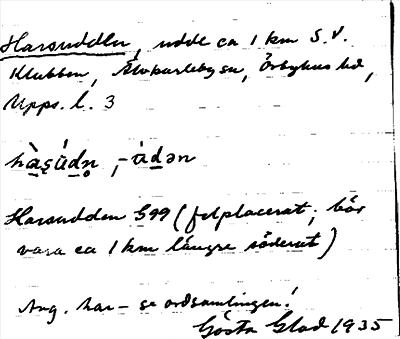 Harsudden, udde ca 1 km S.V.
Klubben, Älvkarleby sn, Örbyhus hd,
Upps. l. 3
hàșúdṇ, -údən
Harsudden G99 (felplacerat; bör
vara ca 1 km längre söderut)
Ang. har- se ordsamlingen!
Gösta Glad 1935